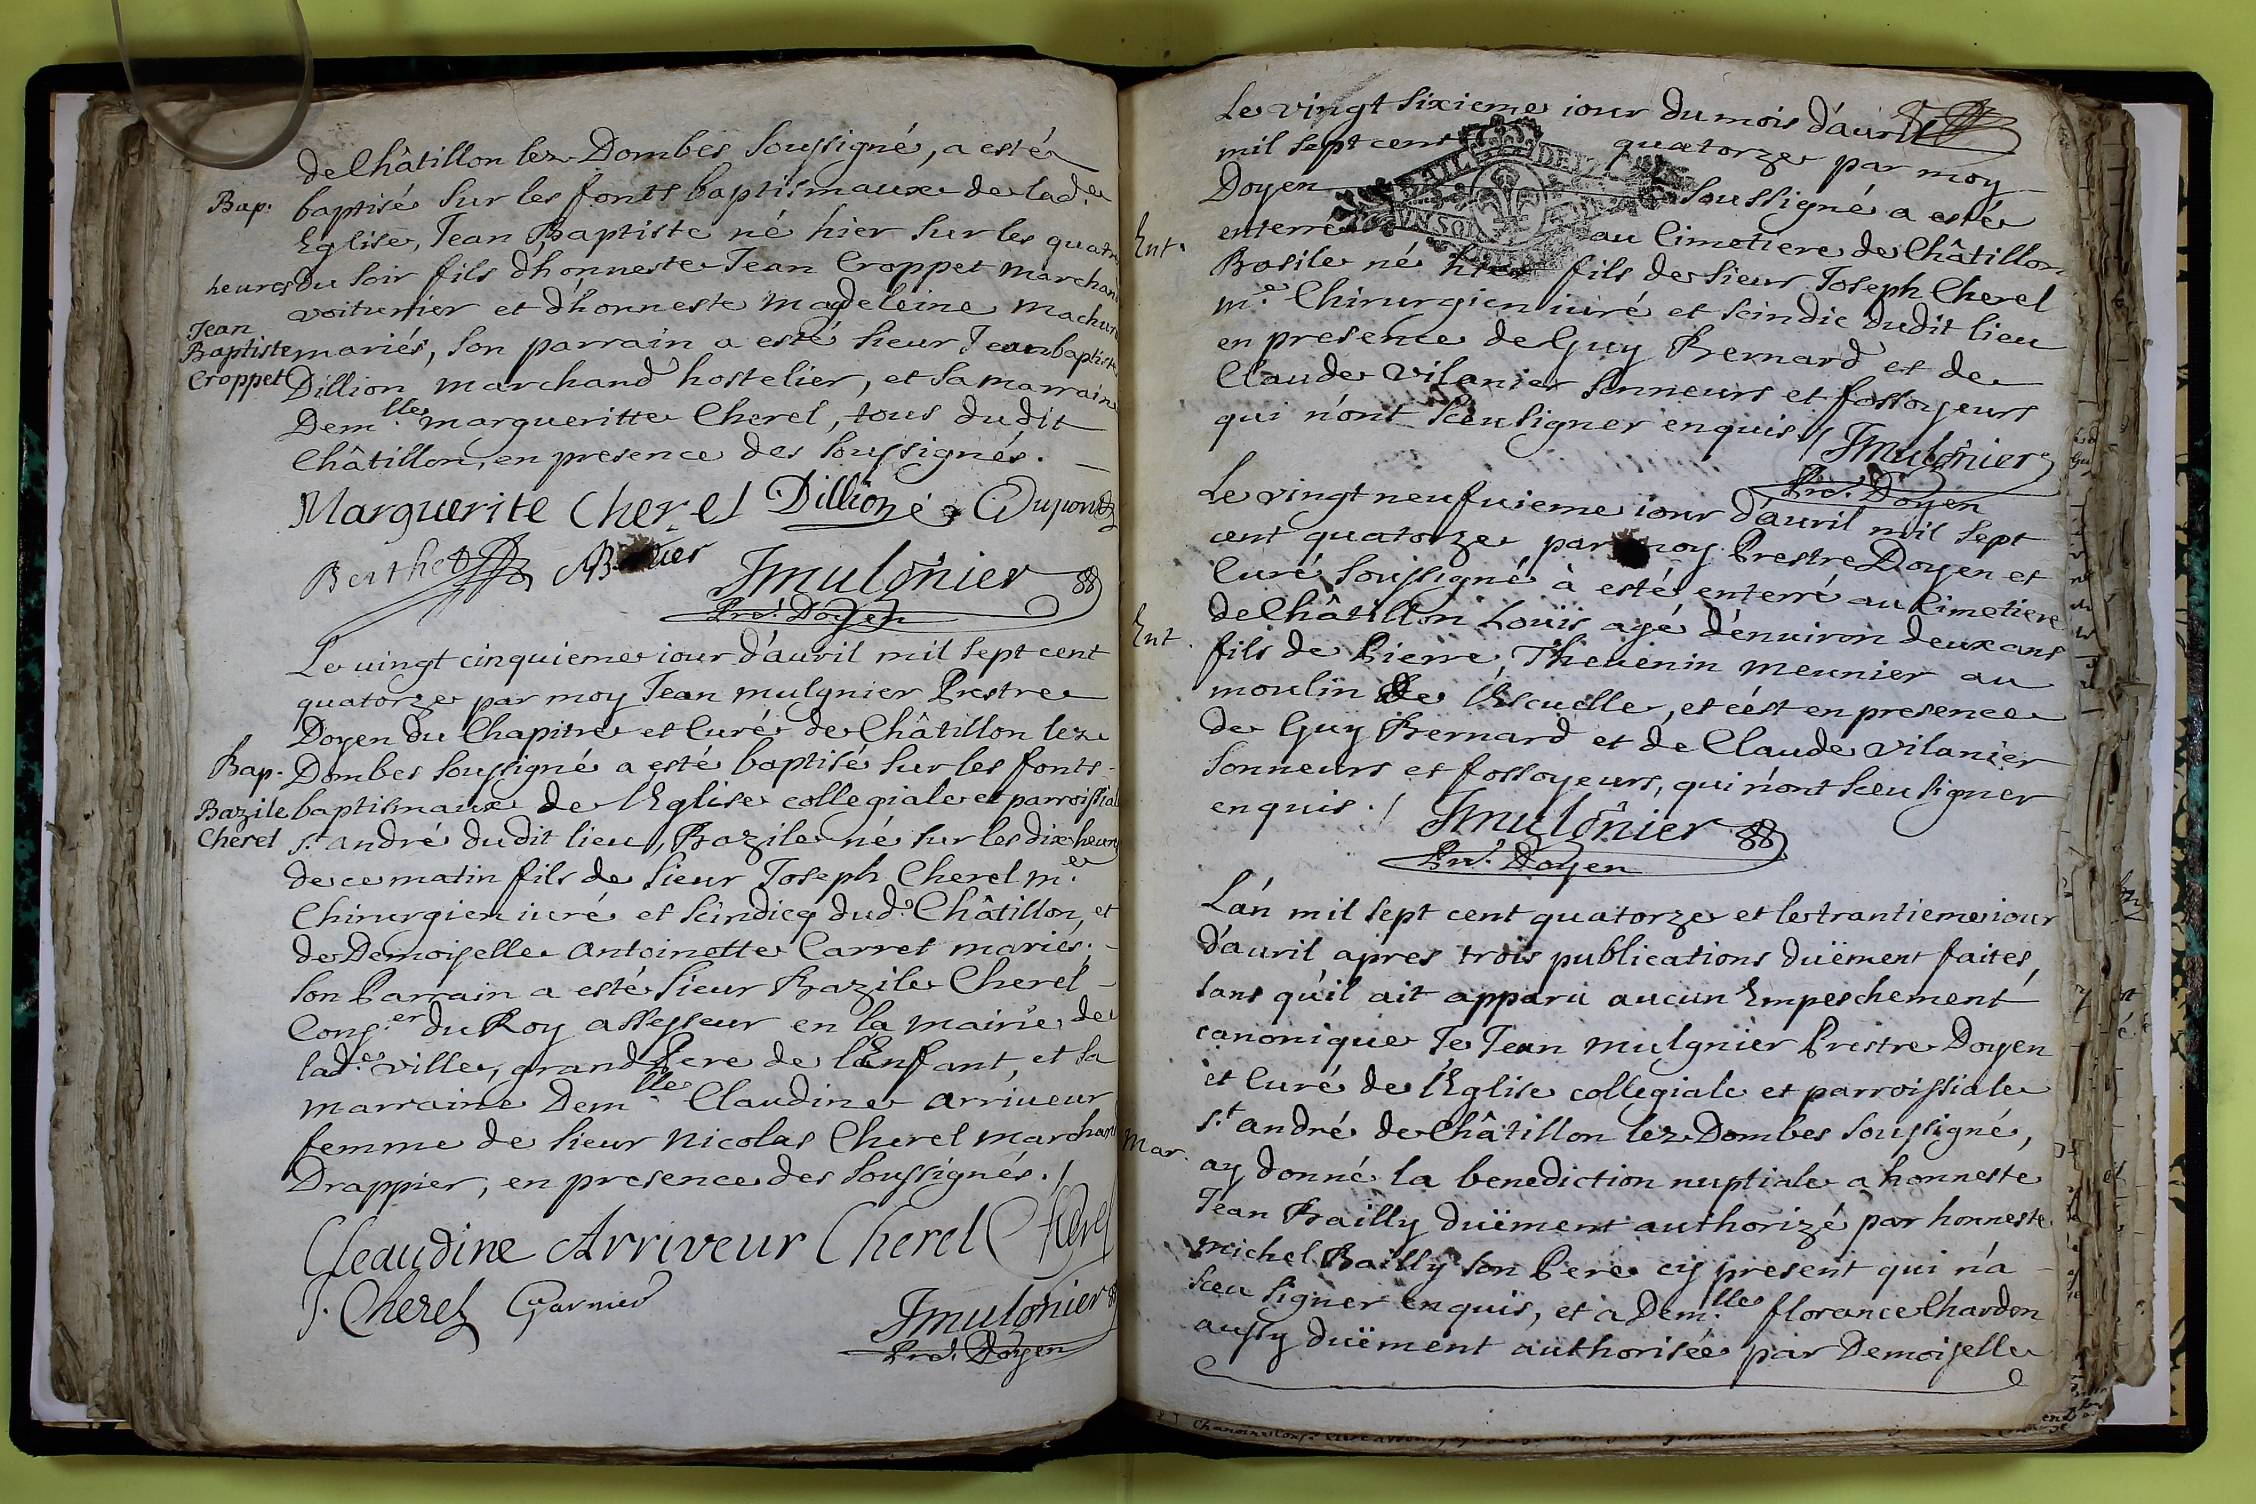 de Châtillon lez Dombes soussigné, a esté
Bap. baptisé sur les fonts baptismaux de lad.e
Eglise, Jean Baptiste né hier sur les quatre
heures du soir fils d'honneste Jean Croppet marchand
voiturier et d'honneste Magdeleine
Jean Baptiste Croppet
mariés, son parrain a esté sieur Jean baptiste
Dillion marchand hostelier, et sa marraine
Dem.lle margueritte Cherel, tous dudit
Châtillon, en presence des soussignés.
Marguerite Cherel Dillion Dupont
Berthet
Jmulgnier
Pre. Doyen
Le vingt cinquieme iour d'auril mil sept cent
quatorze par moy Jean mulgnier Prestre
Doyen du Chapitre et Curé de Châtillon lez
Bap. Dombes soussigné a esté baptisé sur les fonts
Bazile Cherel
baptismaux de l'Eglise collegiale et parroissiale
s.t andré dudit lieu, Bazile né sur les dix heures
de ce matin fils de sieur Joseph Cherel m.e
Chirurgien iuré et scindicq dud. Châtillon, et
de Demoiselle antoinette Carret mariés.
son Parrain a esté sieur Bazile Cherel
Cons.er du Roy assesseur en la mairie de
lad.e ville, grand Pere de l'Enfant, et sa
marraine Dem.lle Claudine arriueur
femme de sieur nicolas Cherel marchand
Drappier, en presence des soussignés. /
Cleaudine Arriveur Cherel Cherel
J. Cherel Garnier
Jmulgnier
Pre. Doyen
Le vingt sixieme iour du mois d'auril
mil sept cent quatorze par moy
Doyen soussigné a esté
Ent. enterré au Cimetiere de Châtillon
Basile né hier fils de sieur Joseph Cherel
m.e Chirurgien iuré et scindic dudit lieu
en presence de Guy Bernard et de
Claude Vilanier sonneurs et fossoyeurs
qui n'ont sceu signer enquis. /
Jmulgnier
Pre. Doyen
Le vingt neufuieme iour d'auril mil sept
cent quatorze par moy Prestre Doyen et
Curé soussigné à esté enterré au Cimetiere
Ent. de Châtillon Loüis agé d'enuiron deux ans
fils de Pierre Theuenin meunier au
moulin de l'Escuelle, et c'est en presence
de Guy Bernard et de Claude Vilanier
sonneurs et fossoyeurs, qui n'ont sceu signer
enquis. /
Jmulgnier
Pre. Doyen
L'an mil sept cent quatorze et le trantieme iour
d'auril apres trois publications düement faites,
sans qu'il ait apparu aucun Empeschement
canonique Je Jean mulgnier Prestre Doyen
et Curé de l'Eglise collegiale et parroissiale
s.t andré de Châtillon lez Dombes soussigné,
Mar. ay donné la benediction nuptiale a honneste
Jean Bailly düement authorizé par honneste
michel Bailly son Pere cy present qui n'a
sceu signer enquis, et a Dem.lle florance Chardon
aussy düement authorisée par Demoiselle